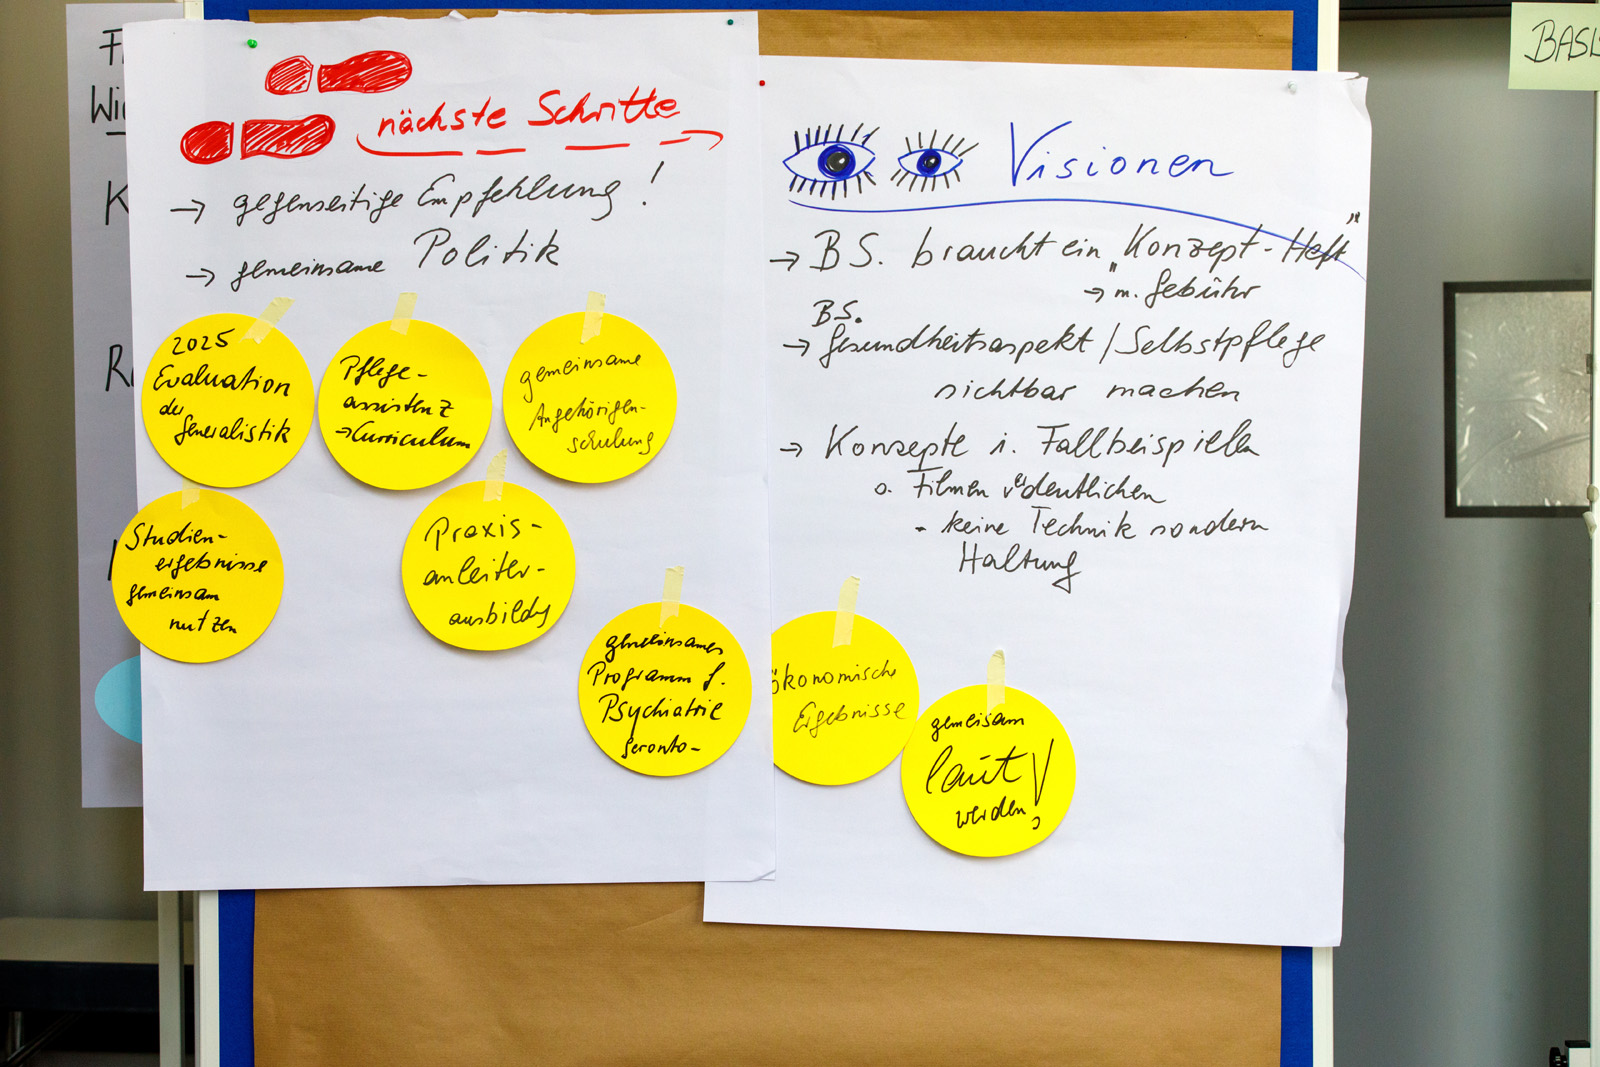 nächste Schritte
→ gegenseitige Empfehlung!
→ gemeinsame Politik
2025
Evaluation
der
Generalistik
Pflege-
assistenz
→ Curriculum
gemeinsame
Angehörigen-
schulung
Studien-
ergebnisse
gemeinsam
nutzen
Praxis-
anleiter-
ausbildg
gemeinsames
Programm f.
Psychiatrie
Geronto-
Visionen
→ BS. braucht ein „Konzept-Heft"
→ m. Gebühr
BS.
→ Gesundheitsaspekt / Selbstpflege
sichtbar machen
→ Konzepte i. Fallbeispielen
o. Filmen verdeutlichen
- keine Technik sondern
Haltung
ökonomische
Ergebnisse
gemeisam
laut
werden!
BASI